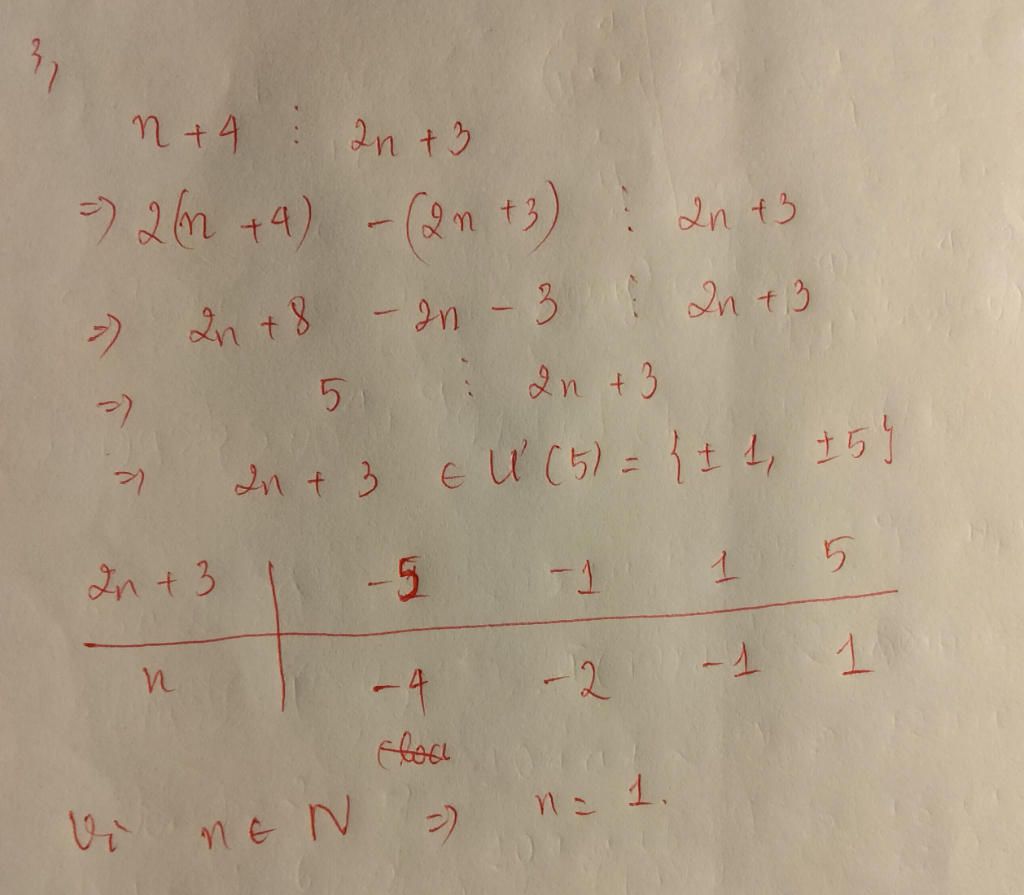 3,
n + 4 ⋮ 2n + 3
=> 2(n + 4) - (2n + 3) ⋮ 2n + 3
=> 2n + 8 - 2n - 3 ⋮ 2n + 3
=> 5 ⋮ 2n + 3
=> 2n + 3 ∈ Ư(5) = {± 1, ±5}
2n + 3 | -5 -1 1 5
n | -4 -2 -1 1
Vì n ∈ N => n = 1.